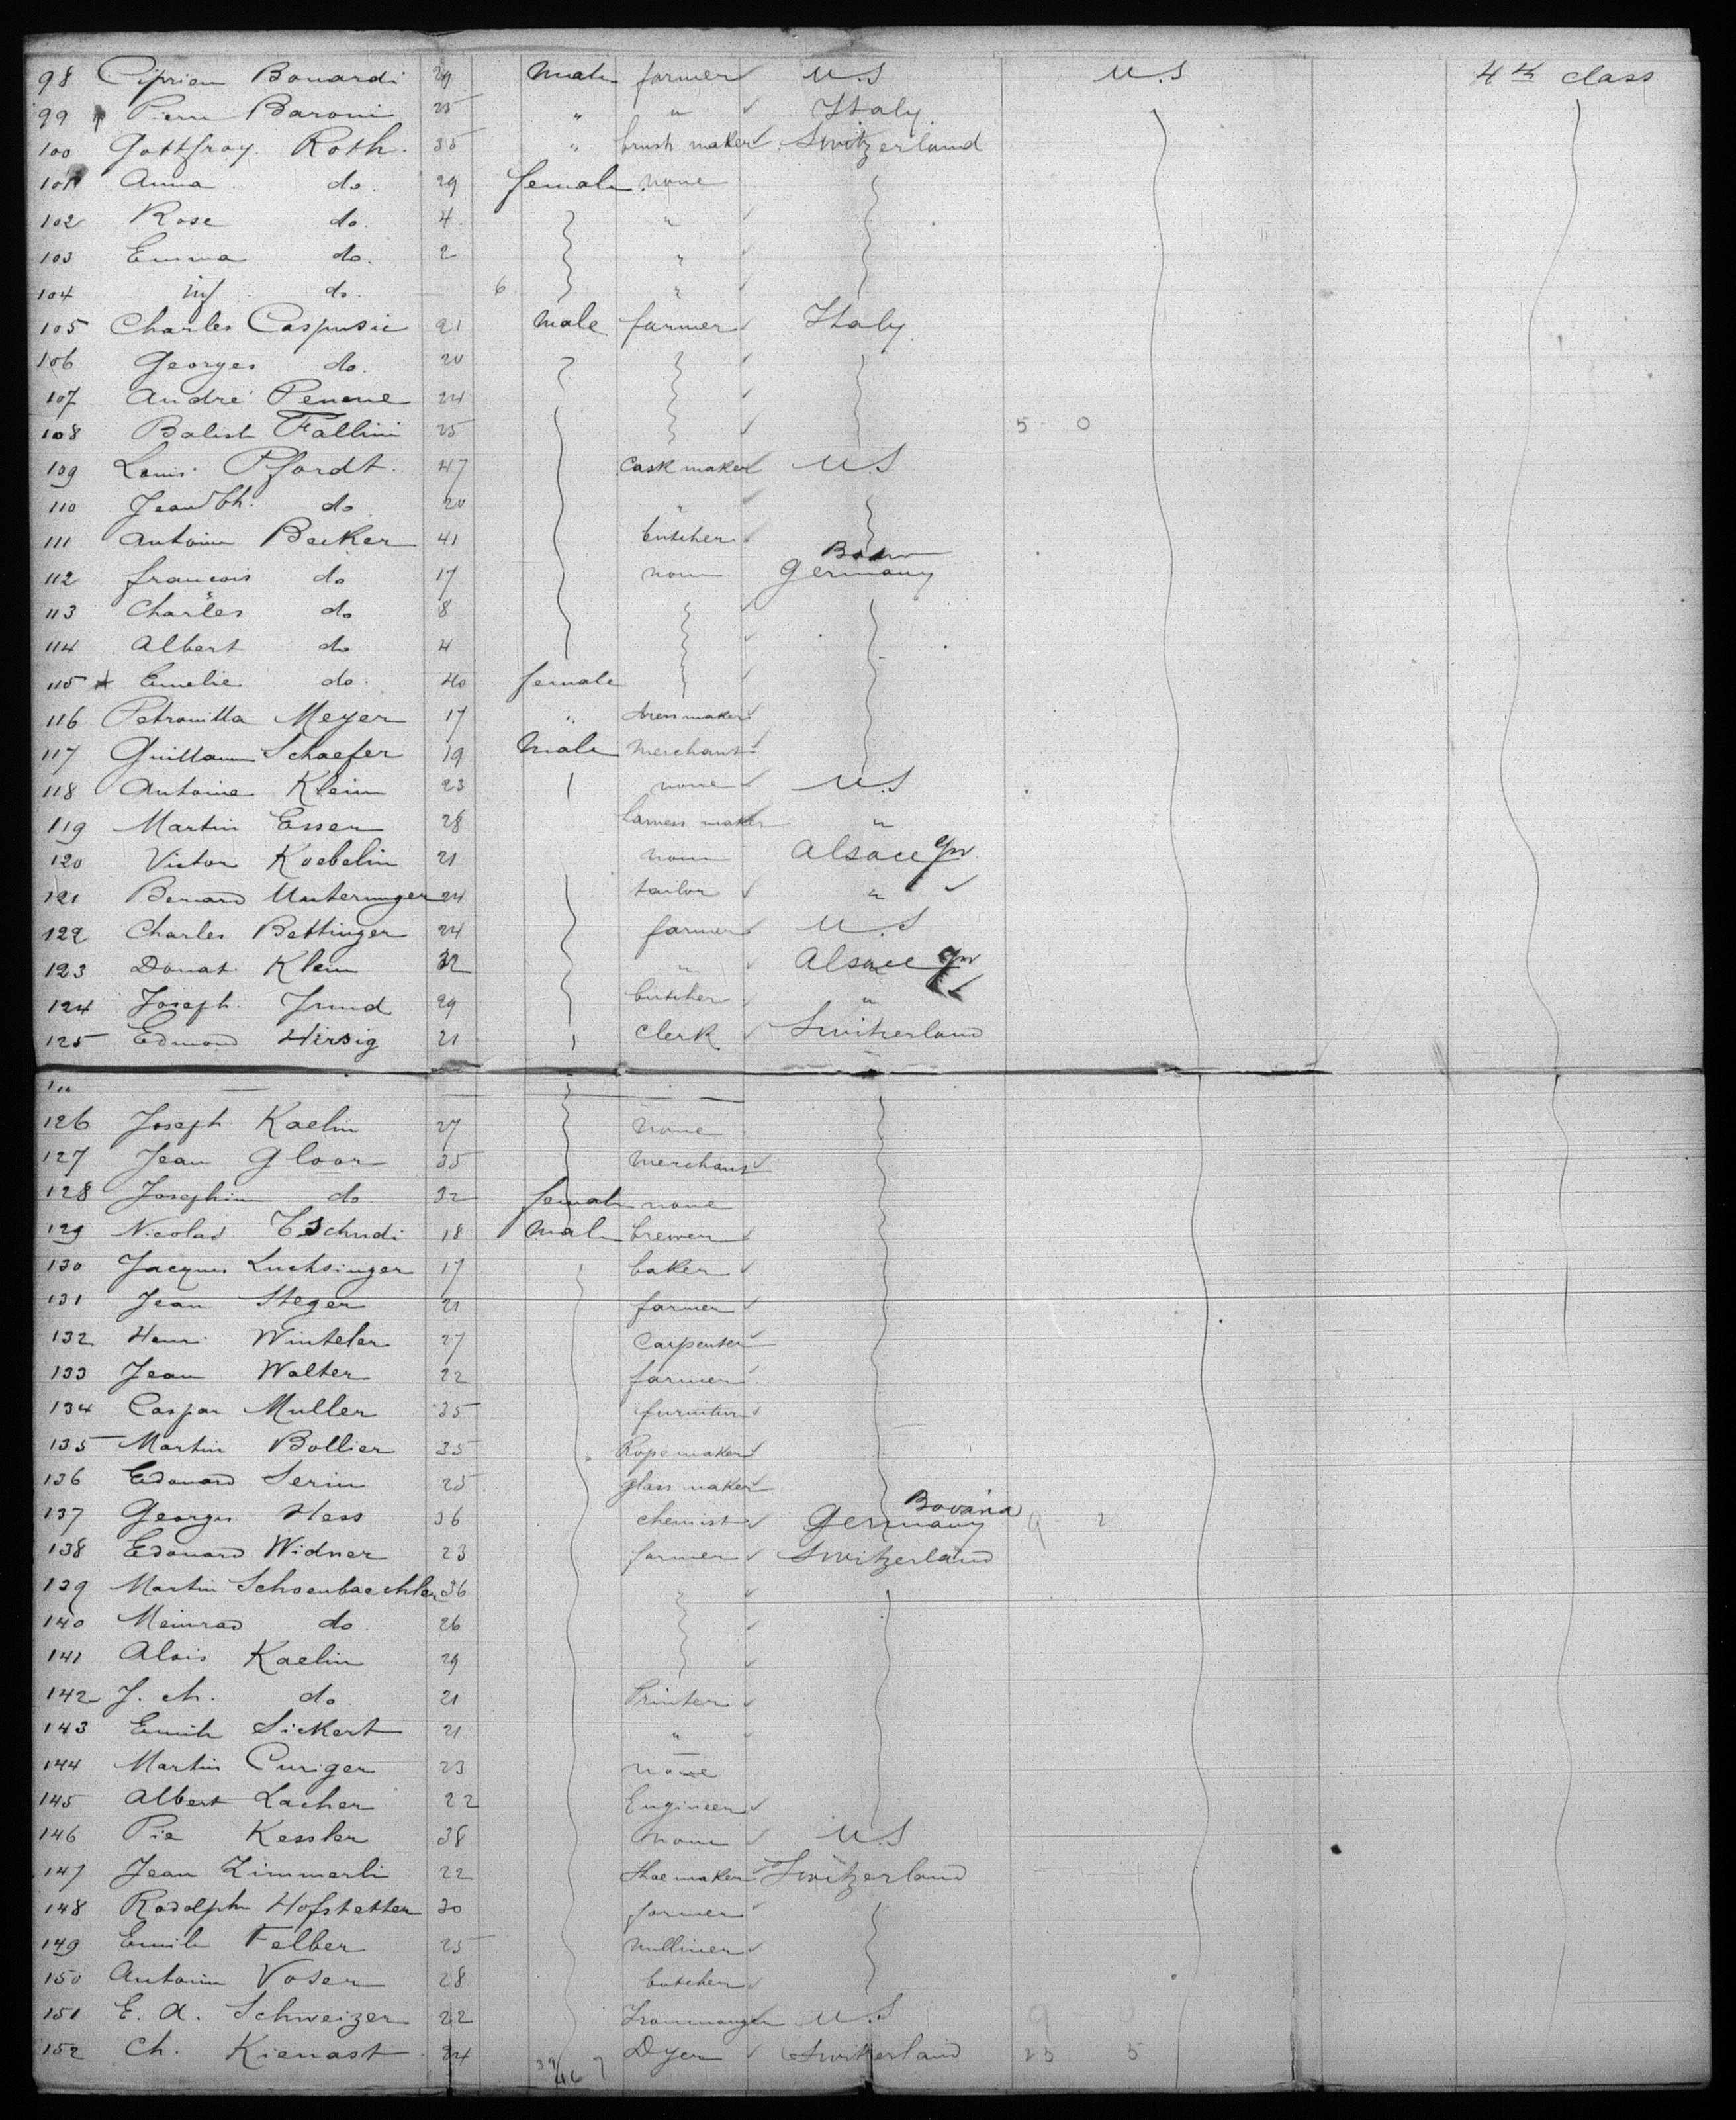 98 Ciprien Bonardi 29 Male farmer U.S U.S 4th class
99 Pierre Baroni 25 " " Italy
100 Gottfroy Roth 35 " brush maker Switzerland
101 Anna do. 29 female none
102 Rose do. 4 "
103 Emma do. 2 "
104 inf do. 6 "
105 Charles 21 Male farmer Italy
106 Georges do. 20
107 André Penone 24
108 Fallini 25 5 0
109 Louis Pfordt 47 Cask maker U.S
110 Jean do 20 "
111 Antoine Becker 41 butcher
112 francois do 17 none Germany
113 Charles do 8
114 Albert do 4
115 Emelie do. 40 female
116 Petronilla Meyer 17 " dressmaker
117 Guillaume Schaefer 19 Male Merchant
118 Antoine Klein 23 none U.S
119 Martin Esser 28 harness maker "
120 Victor Koebelin 21 none Alsace
121 Bernard 24 tailor "
122 Charles Bettinger 24 farmer U.S
123 Donat Klein 32 " Alsace
124 Joseph Jund 29 butcher "
125 Edmond Hirsig 21 Clerk Switzerland
126 Joseph Kaelin 27 none
127 Jean Gloor 35 Merchant
128 Josephine do 32 female none
129 Nicolas Tschudi 18 Male brewer
130 Jacques Luchsinger 17 baker
131 Jean Steger 21 farmer
132 Henri Winteler 27 Carpenter
133 Jean Walter 22 farmer
134 Caspar Muller 35 furniture
135 Martin Bollier 35 Ropemaker
136 Edouard Serin 25 glass maker
137 Georges Hess 36 chemist Germany Bavaria 9 2
138 Edouard Widmer 23 farmer Switzerland
139 Martin Schoenbaechler 36 "
140 Meinrad do. 26
141 Alois Kaelin 29
142 J. ch. do 21 Printer
143 Emile Sickert 21 "
144 Martin Curiger 23 none
145 Albert Lacher 22 Engineer
146 Pie Kessler 38 none U.S
147 Jean Zimmerli 22 Shoemaker Switzerland
148 Rodolphe Hofstetter 30 farmer
149 Emile Felber 25 Milliner
150 Antoine Voser 28 butcher
151 E. A. Schweizer 22 Ironmonger U.S 9 0
152 Ch. Kienast 24 Dyer Switzerland 25 5
39 46 7